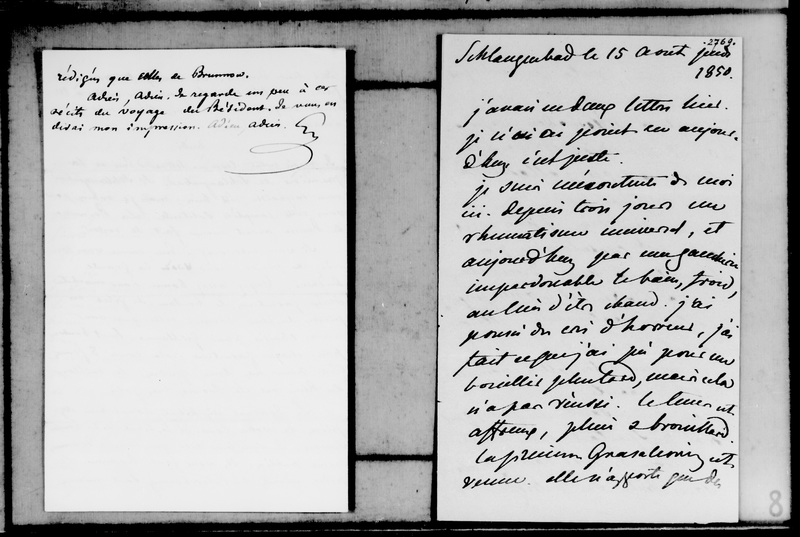 rédigés que celles de Brunnow.
Adieu Adieu. Je regarde un peu à ces
récits du voyage du Président. Je vous en
dirai mon impression. Adieu Adieu.
2769.
Schlangenbad le 15 Août jeudi
1850.
j'avais eu deux lettres hier.
je n'en ai point eu aujour-
d'huy c'est juste.
je suis mécontente de moi
ici. depuis trois jours un
rhumatisme universel, et
aujourd'huy par une
impardonable le bain, froid,
au lieu d'être chaud. j'ai
poussé des cris d'horreur, j'ai
fait ce que j'ai pû pour me
plus tard, mais cela
n'a pas réussi. le tems est
affreux, pluie & brouillard.
la princesse est
venue. elle n'apporte que des
8